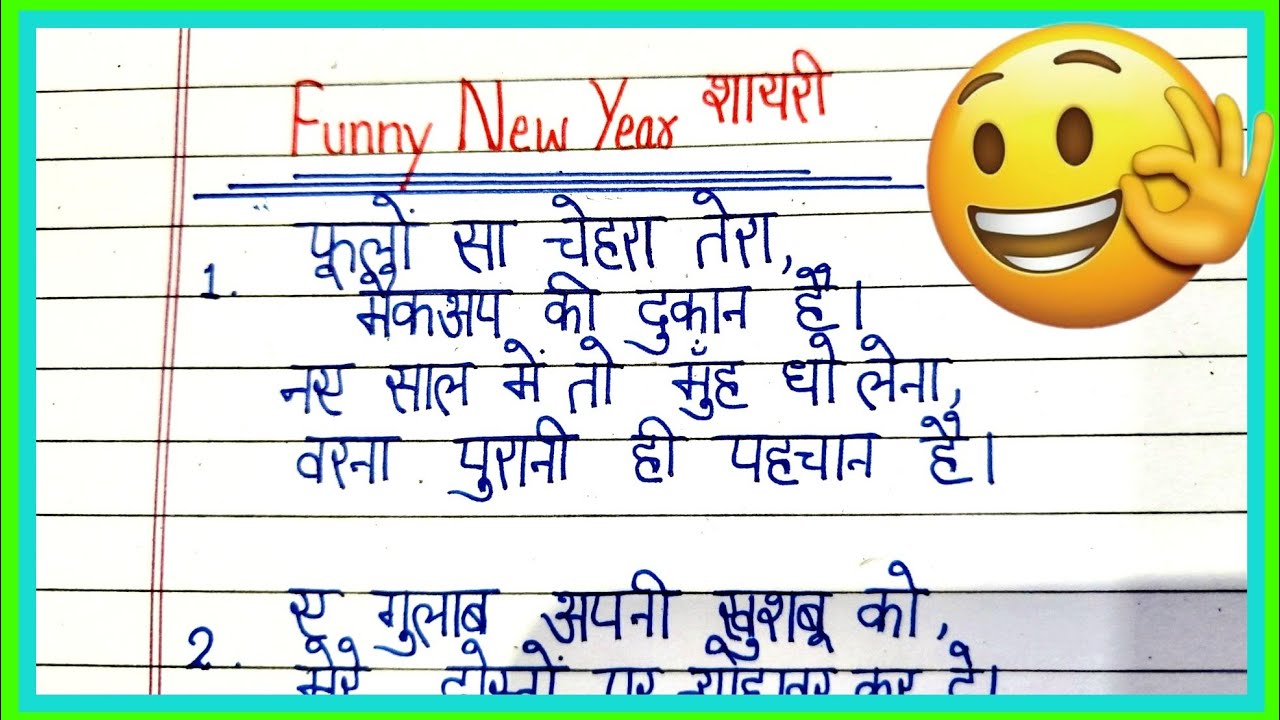 Funny New Year शायरी
1. फूलों सा चेहरा तेरा,
मेकअप की दुकान है।
नए साल में तो मुँह धो लेना,
वरना पुरानी ही पहचान है।
2. ए गुलाब अपनी खुशबू को,
मेरे दोस्तों पर न्योछावर कर दे।